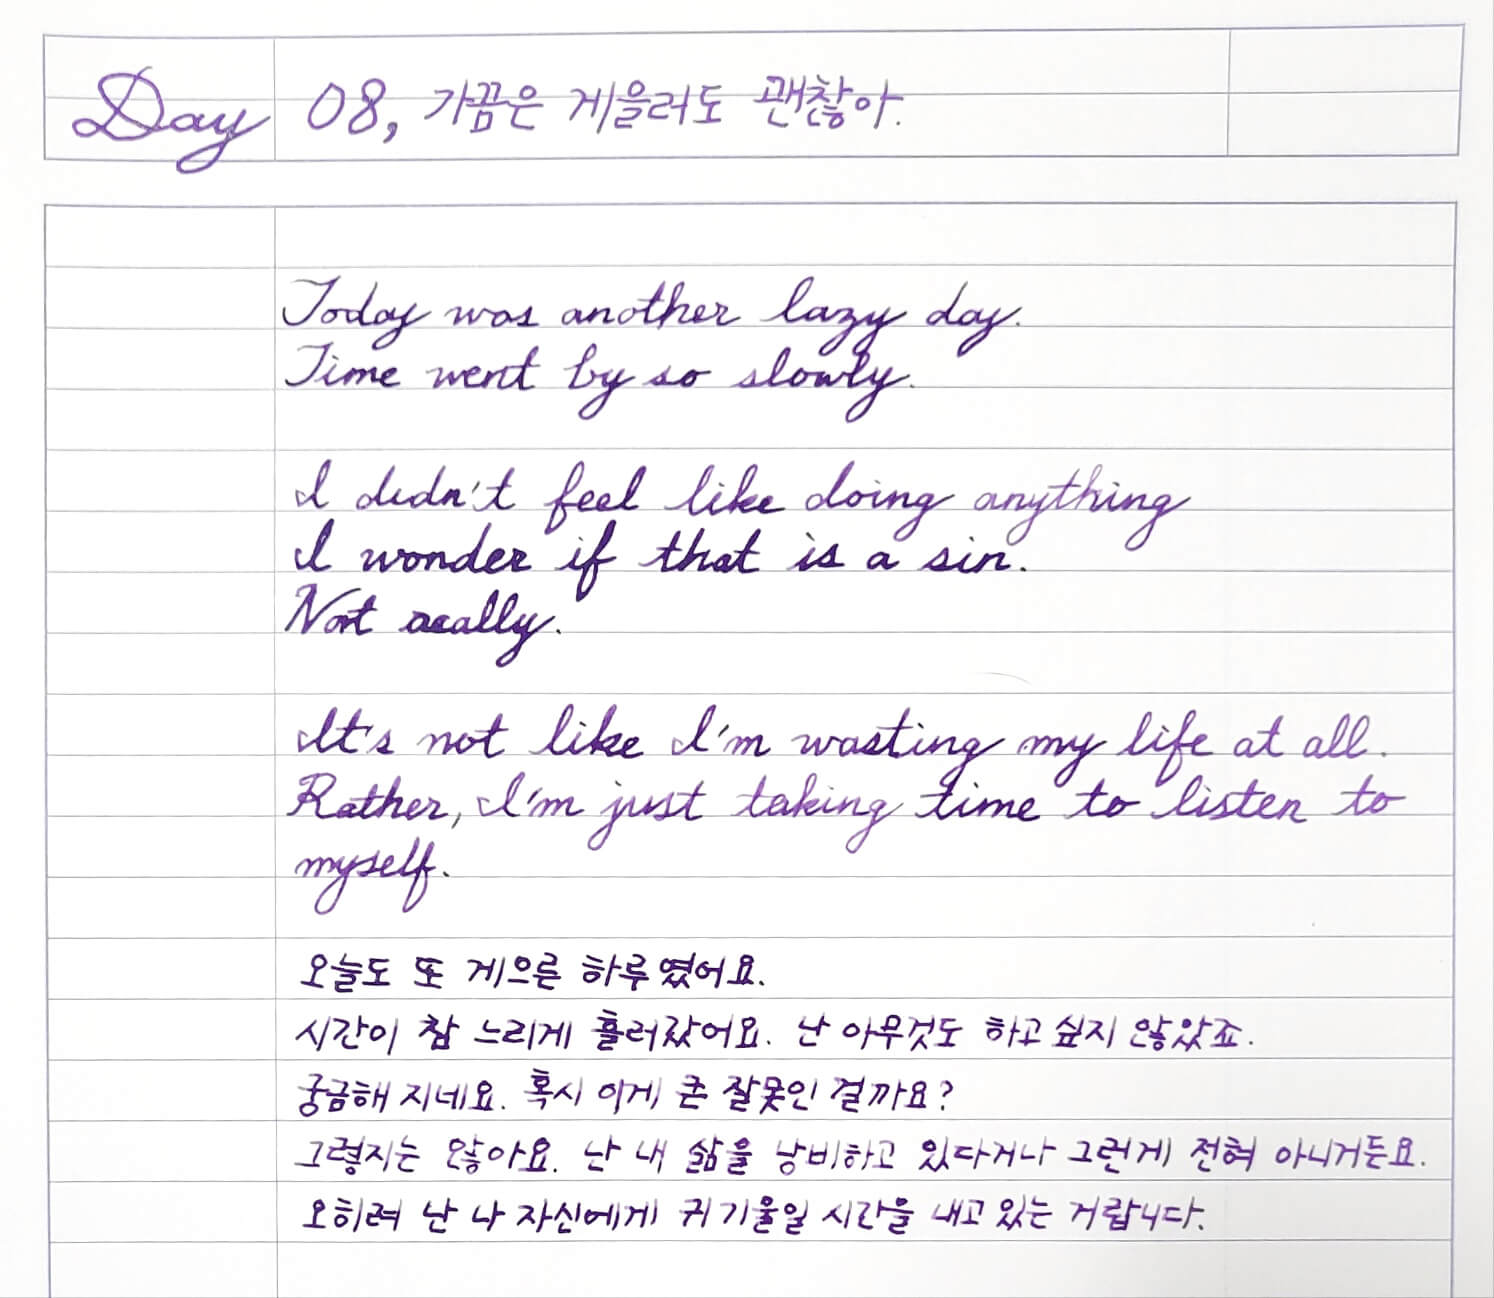 Day 08, 가끔은 게을러도 괜찮아.
Today was another lazy day.
Time went by so slowly.
I didn't feel like doing anything
I wonder if that is a sin.
Not really.
It's not like I'm wasting my life at all.
Rather, I'm just taking time to listen to
myself.
오늘도 또 게으른 하루였어요.
시간이 참 느리게 흘러갔어요. 난 아무것도 하고 싶지 않았죠.
궁금해 지네요. 혹시 이게 큰 잘못인 걸까요?
그렇지는 않아요. 난 내 삶을 낭비하고 있다거나 그런게 전혀 아니거든요.
오히려 난 나 자신에게 귀 기울일 시간을 내고 있는 거랍니다.